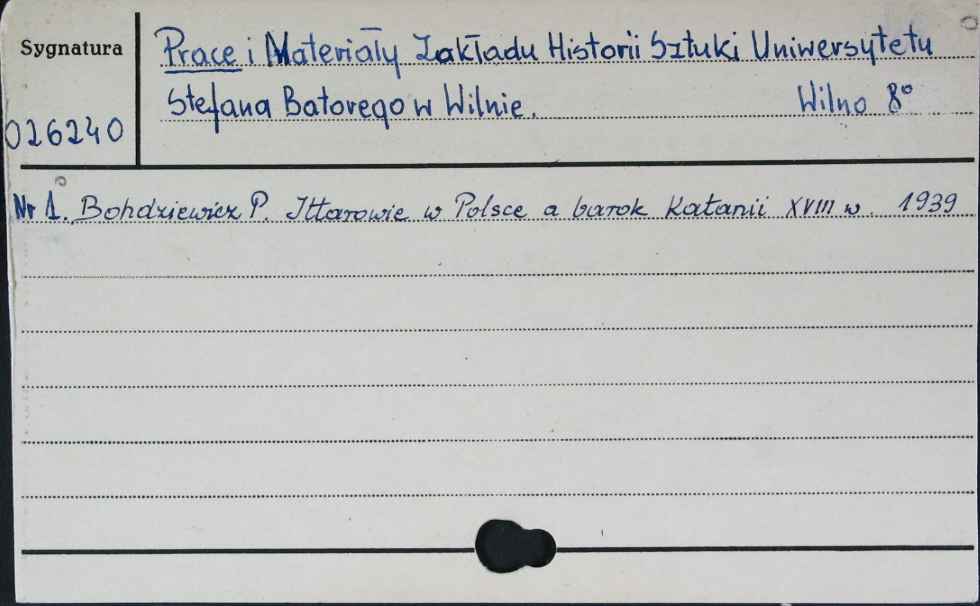 Sygnatura
Prace i Materiały Zakładu Historii Sztuki Uniwersytetu
Stefana Batorego w Wilnie. Wilno 8°
026240
Nr 1. Bohdziewicz P. Ittarowie w Polsce a barok Katanii XVIII w. 1939